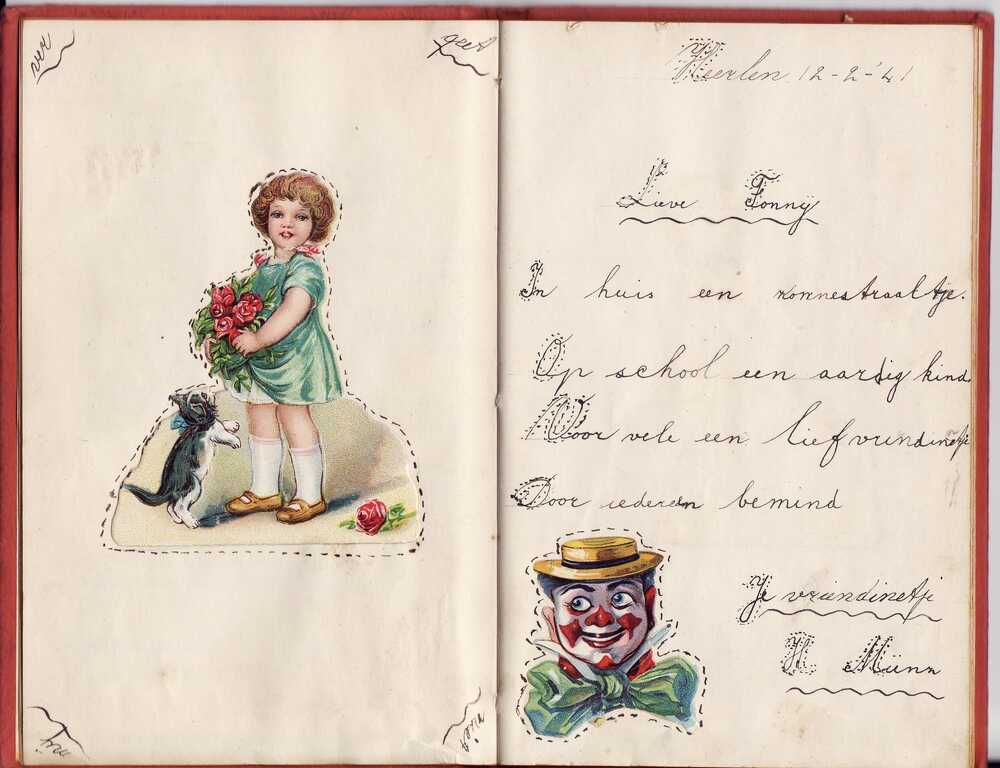 ver
geet
mij
niet
Heerlen 12-2-'41
Lieve Fonny
In huis een zonnestraaltje.
Op school een aardig kind
Voor vele een lief vriendinetje
Door iedereen bemind
Je vriendinetje
H. Münn